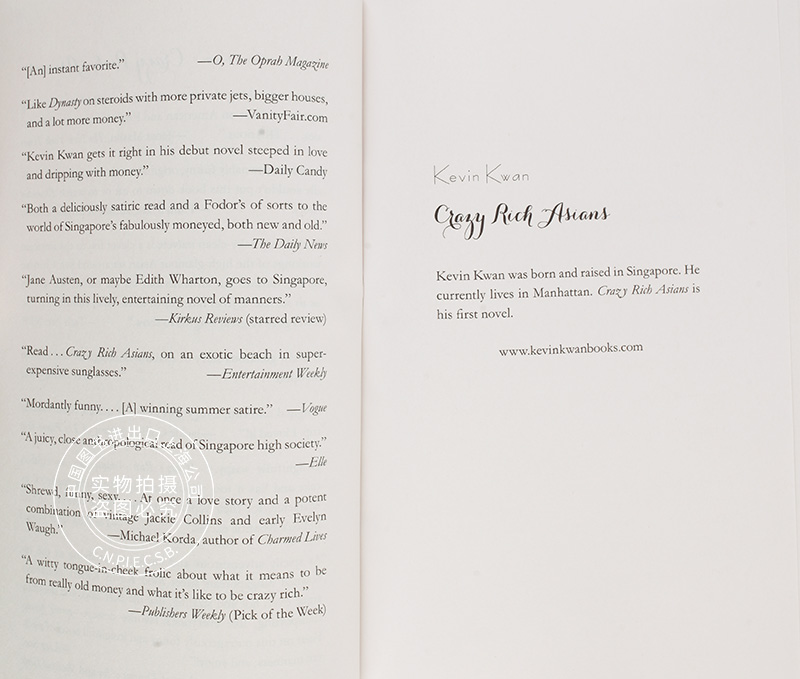 “[An] instant favorite.” —O, The Oprah Magazine
“Like Dynasty on steroids with more private jets, bigger houses,
and a lot more money.” —VanityFair.com
“Kevin Kwan gets it right in his debut novel steeped in love
and dripping with money.” —Daily Candy
“Both a deliciously satiric read and a Fodor’s of sorts to the
world of Singapore’s fabulously moneyed, both new and old.”
—The Daily News
“Jane Austen, or maybe Edith Wharton, goes to Singapore,
turning in this lively, entertaining novel of manners.”
—Kirkus Reviews (starred review)
“Read . . . Crazy Rich Asians, on an exotic beach in super-
expensive sunglasses.” —Entertainment Weekly
“Mordantly funny. . . . [A] winning summer satire.” —Vogue
“A juicy, close anthropological read of Singapore high society.”
—Elle
“Shrewd, funny, sexy. . . . At once a love story and a potent
combination of vintage Jackie Collins and early Evelyn
Waugh.” —Michael Korda, author of Charmed Lives
“A witty tongue-in-cheek frolic about what it means to be
from really old money and what it’s like to be crazy rich.”
—Publishers Weekly (Pick of the Week)
中国图书进出口上海公司
实物拍摄
盗图必究
C.N.P.I.E.C.S.B.
Kevin Kwan
Crazy Rich Asians
Kevin Kwan was born and raised in Singapore. He
currently lives in Manhattan. Crazy Rich Asians is
his first novel.
www.kevinkwanbooks.com